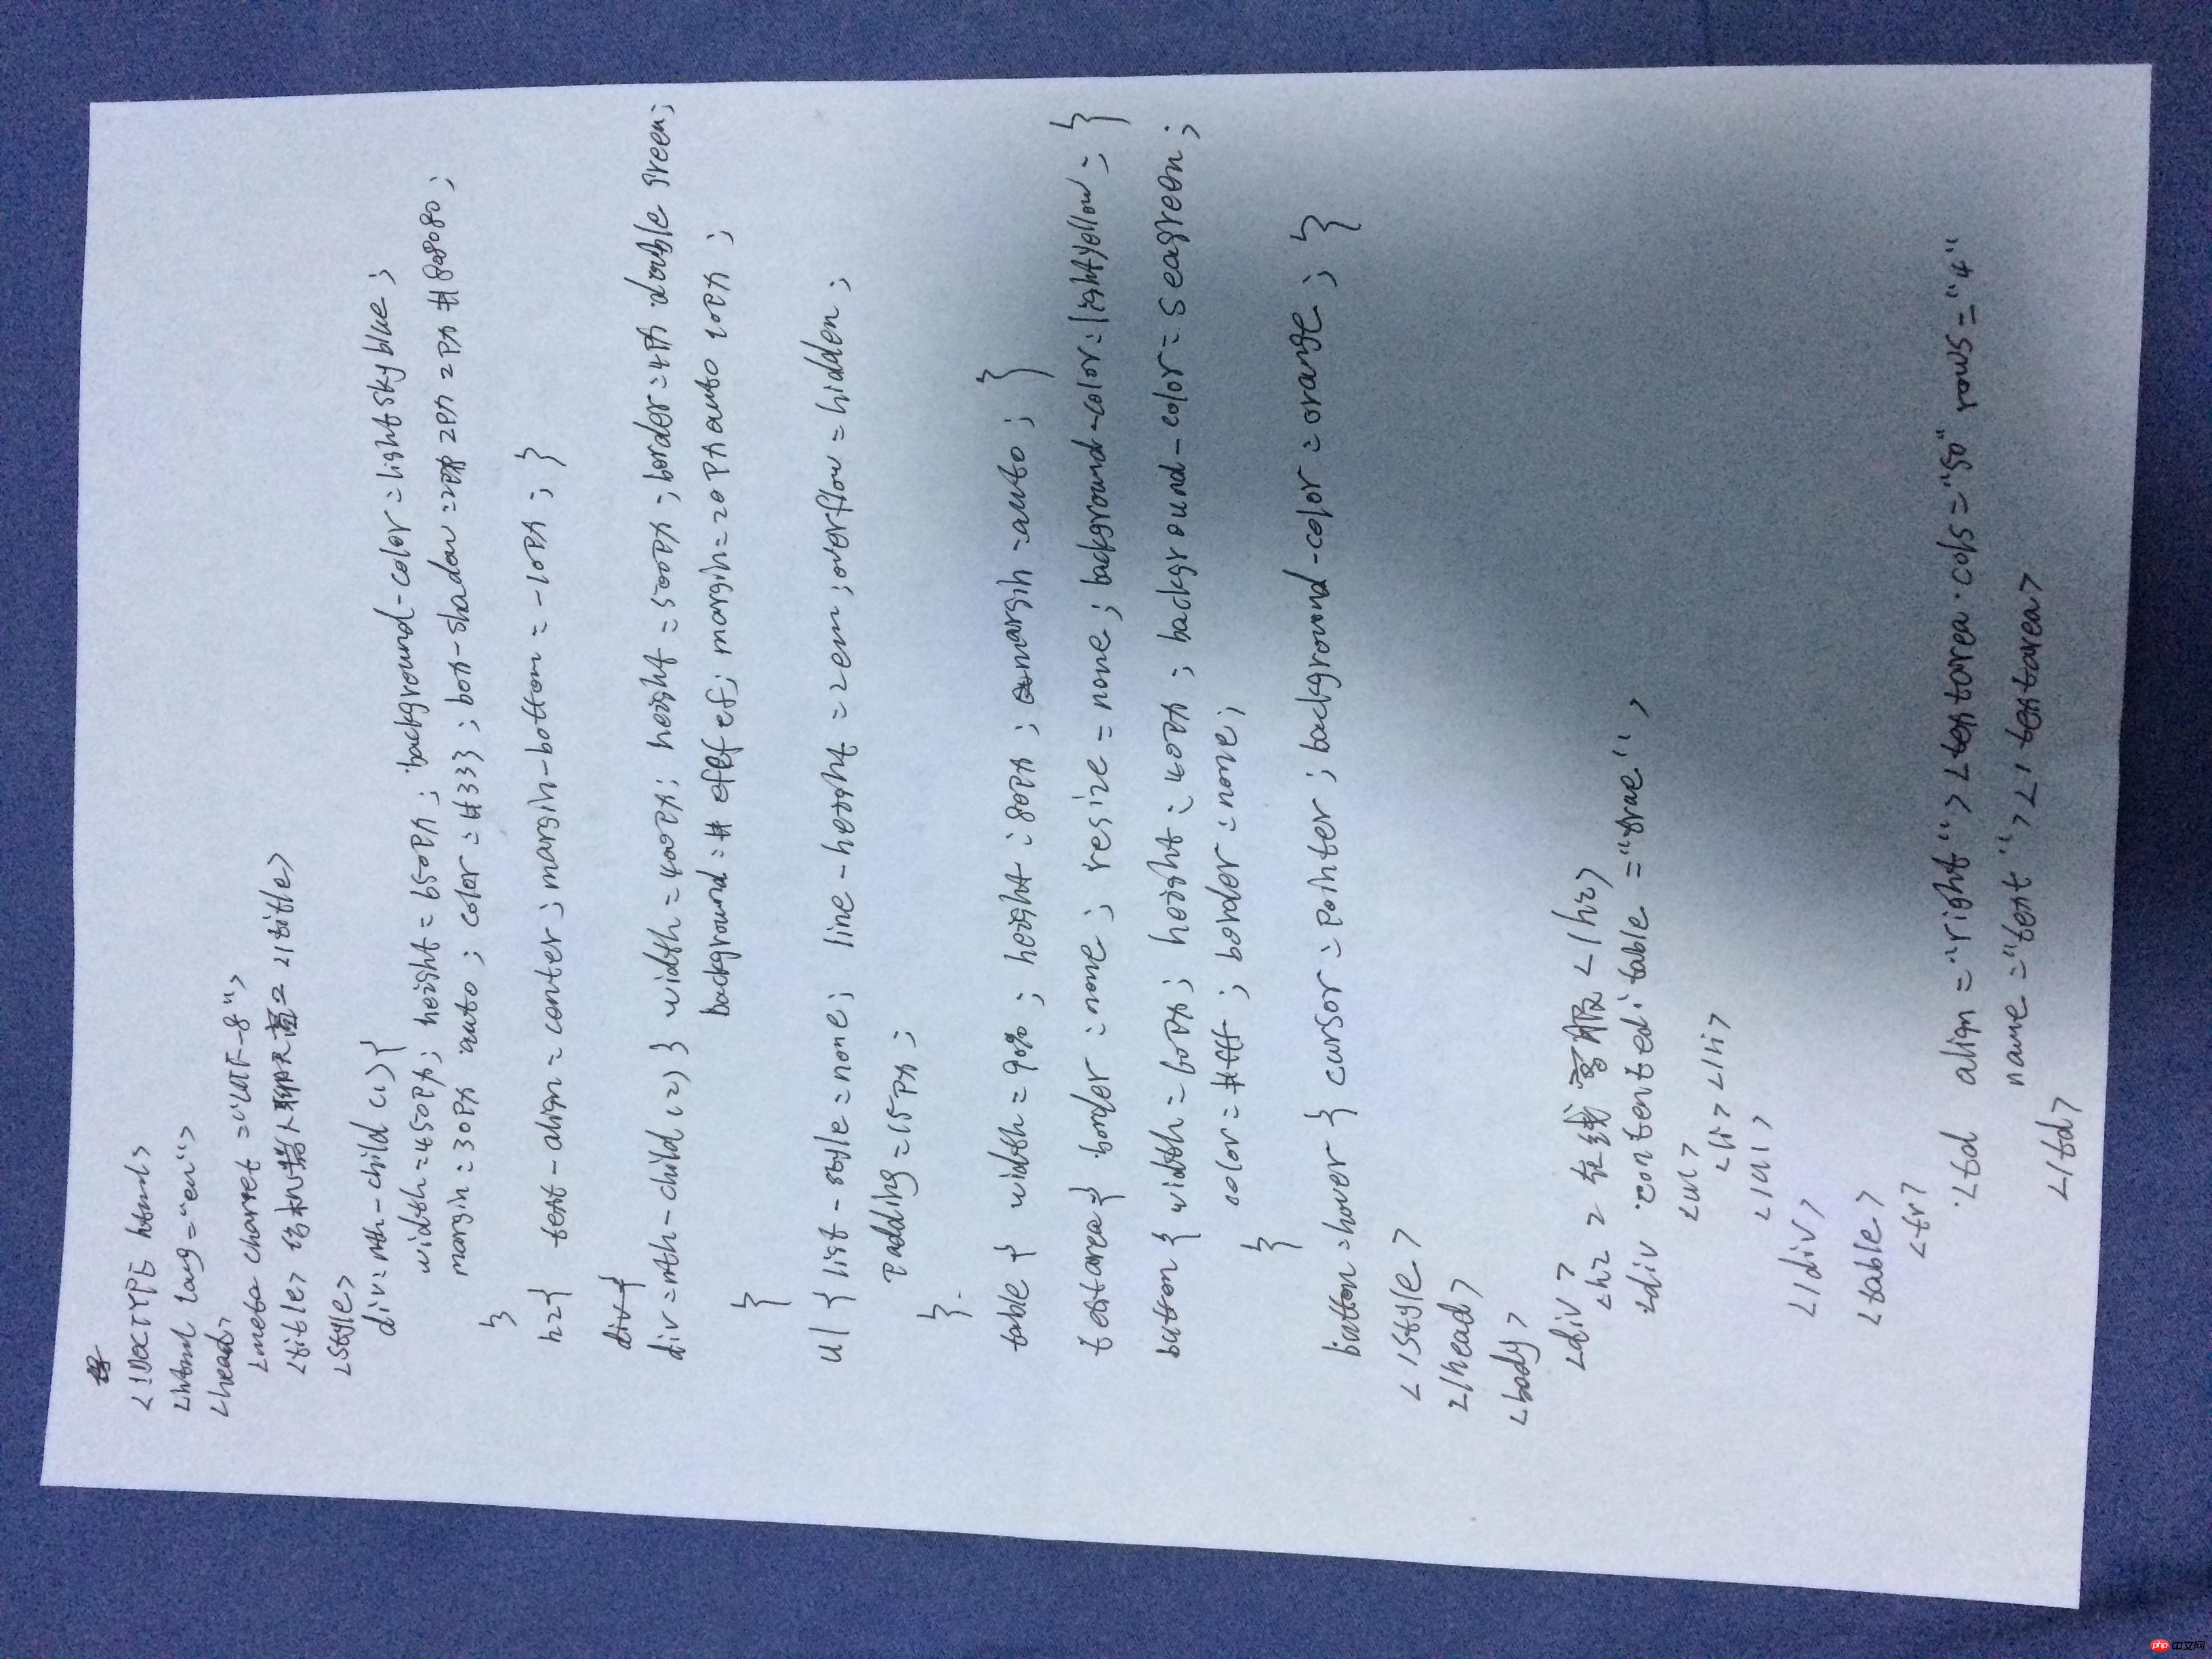 <!DOCTYPE html>
<html lang="en">
<head>
<meta charset="UTF-8">
<title>
</title>
<style>
div:nth-child(1){
width:450px; height:650px; background-color:lightskyblue;
margin:30px auto; color:#333; box-shadow:2px 2px 2px #808080;
}
h2{ text-align:center; margin-bottom:-10px; }
div{
div:nth-child(2){ width:400px; height:500px; border:4px double green;
background:#efefef; margin:20px auto 10px;
}
ul{ list-style:none; line-height:2em; overflow:hidden;
padding:15px;
}
table { width:90%; height:80px; margin:auto; }
textarea{ border:none; resize:none; background-color:lightyellow; }
button{ width:60px; height:40px; background-color:seagreen;
color:#fff; border:none;
}
button:hover { cursor:pointer; background-color:orange; }
</style>
</head>
<body>
<div>
<h2>在线客服</h2>
<div contenteditable="true">
<ul>
<li></li>
</ul>
</div>
<table>
<tr>
<td align="right"><textarea cols="50" rows="4"
name="text"></textarea>
</td>
php 中文网